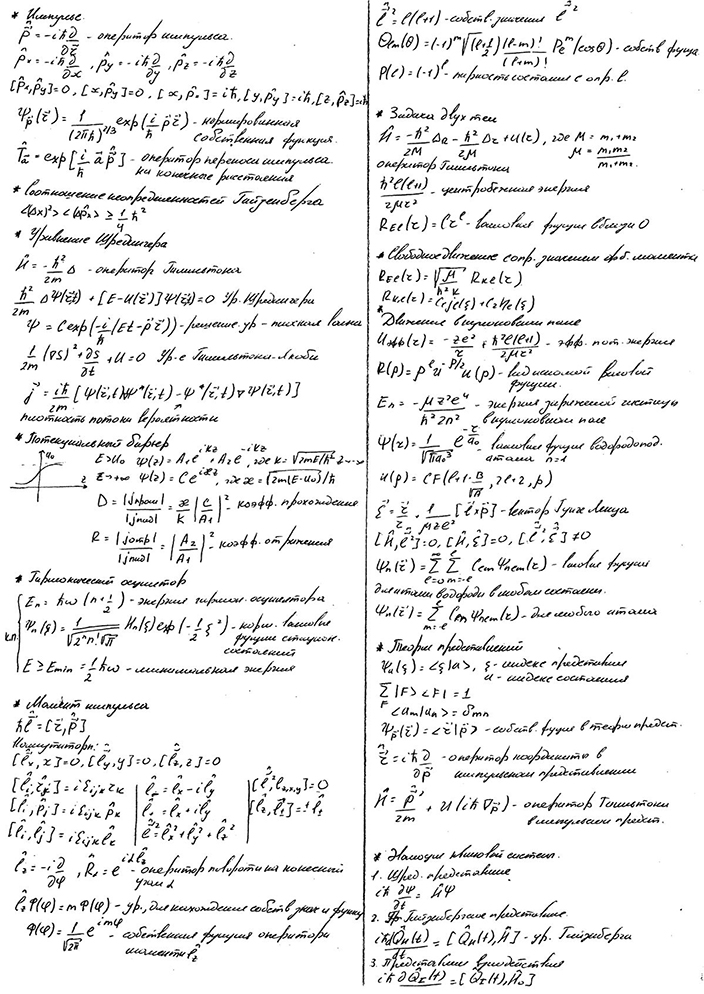 * Импульс.
\hat{\vec{p}} = -iħ ∂/∂\vec{r} - оператор импульса.
\hat{p}_x = -iħ ∂/∂x, \hat{p}_y = -iħ ∂/∂y, \hat{p}_z = -iħ ∂/∂z
[\hat{p}_x, \hat{p}_y] = 0, [x, \hat{p}_y] = 0, [x, \hat{p}_x] = iħ, [y, \hat{p}_y] = iħ, [z, \hat{p}_z] = iħ
Ψ_{\vec{p}}(\vec{r}) = 1/(2πħ)^{2/3} exp(i/ħ \vec{p}\vec{r}) - нормированная
собственная функция.
\hat{T}_a = exp[i/ħ \vec{a}\hat{\vec{p}}] - оператор переноса импульса
на конечные расстояния
* соотношение неопределенностей Гайзенберга
<(Δx)²><(Δ\hat{p}_x)> ≥ 1/4 ħ²
* Уравнение Шредингера
\hat{H} = -ħ²/2m Δ - оператор Гамильтона
ħ²/2m ΔΨ(\vec{r},t) + [E - U(\vec{r})]Ψ(\vec{r},t) = 0 Ур. Шредингера
Ψ = C exp(-i/ħ (Et - \vec{p}\vec{r})) - решение ур - плоская волна
1/2m (∇S)² + ∂S/∂t + U = 0 Ур-е Гамильтона-Якоби
\vec{j} = iħ/2m [Ψ(\vec{r},t)∇Ψ*(\vec{r},t) - Ψ*(\vec{r},t)∇Ψ(\vec{r},t)]
плотность потока вероятности
* Потенциальный барьер
U₀ E>U₀ Ψ(z) = A₁e^{ikz} + A₂e^{-ikz}, где k = √(2mE/ħ²) z→-∞
z z→+∞ Ψ(z) = Ce^{iæz}, где æ = √(2m(E-U₀))/ħ
D = |jпрош|/|jпад| = æ/k |C/A₁|² - коэфф. прохождения
R = |jотр|/|jпад| = |A₂/A₁|² - коэфф. отражения
* Гармонический осциллятор
E_n = ħω(n + 1/2) - энергия гармон. осциллятора
Ψ_n(ξ) = 1/√(2ⁿn!√π) H_n(ξ) exp(-1/2 ξ²) - норм. волновые
функции стацион.
состояний
E ≥ E_min = 1/2 ħω - минимальная энергия
* Момент импульса
ħ\hat{\vec{l}} = [\vec{r}, \hat{\vec{p}}]
Коммутаторы:
[\hat{l}_x, x] = 0, [\hat{l}_y, y] = 0, [\hat{l}_z, z] = 0
[\hat{l}_i, \hat{r}_j] = iε_{ijk} r_k | \hat{l}_- = \hat{l}_x - i\hat{l}_y | [\hat{\vec{l}}², \hat{l}_{x,z,y}] = 0
[\hat{l}_i, \hat{p}_j] = iε_{ijk} \hat{p}_k | \hat{l}_+ = \hat{l}_x + i\hat{l}_y | [\hat{l}_z, \hat{l}_±] = ±\hat{l}_±
[\hat{l}_i, \hat{l}_j] = iε_{ijk} \hat{l}_k | \hat{\vec{l}}² = \hat{l}_x² + \hat{l}_y² + \hat{l}_z²
\hat{l}_z = -i ∂/∂φ, \hat{R}_α = e^{iα\hat{l}_z} - оператор поворота на конечный
угол α
\hat{l}_zΦ(φ) = mΦ(φ) - ур. для нахождения собств знач и функц
Φ(φ) = 1/√(2π) e^{imφ} - собственная функция оператора
момента \hat{l}_z
\hat{\vec{l}}² = l(l+1) - собств. значения \hat{\vec{l}}²
Θ_{lm}(θ) = (-1)^m √((l+1/2) (l-m)!/(l+m)!) P_l^m(cosθ) - собств функц
P(l) = (-1)^l - четность состояния с опр. l.
* Задача двух тел
\hat{H} = -ħ²/2M Δ_R - ħ²/2μ Δ_r + U(r), где M = m₁+m₂
оператор Гамильтона μ = m₁m₂/(m₁+m₂)
ħ²l(l+1)/2μr² - центробежная энергия
R_{El}(r) = Cr^l - волновая функция вблизи 0
* Свободное движение с опр. значением орб. момента
R_{El}(r) = √(μ/ħ²k) R_{kl}(r)
R_{kl}(r) = C₁j_l(ξ) + C₂n_l(ξ)
* Движение в кулоновском поле
U_{эфф}(r) = -ze²/r + ħ²l(l+1)/2μr² - эфф. пот. энергия
R(ρ) = ρ^l e^{-ρ/2} u(ρ) - вид искомой волновой
функции.
E_n = -μz²e⁴/ħ²2n² - энергия заряженной частицы
в кулоновском поле
Ψ(r) = 1/√(πa₀³) e^{-r/a₀} - волновая функция водородопод.
атома n=1
u(ρ) = CF(l+1-B/√A, 2l+2, ρ)
\hat{\vec{ξ}} = \vec{r}/r - 1/μze² [\hat{\vec{l}}×\hat{\vec{p}}] - вектор Рунге Ленца
[\hat{H}, \hat{\vec{l}}²] = 0, [\hat{H}, \hat{ξ}] = 0, [\hat{\vec{l}}², \hat{ξ}] ≠ 0
Ψ_n(\vec{r}) = Σ_{l=0} Σ_{m=-l}^{l} C_{lm}Ψ_{nlm}(r) - волновая функция
для атома водорода в любом состоянии.
Ψ_n(\vec{r}) = Σ_{m=-l}^{l} C_{lm}Ψ_{nlm}(r) - для любого атома
* Теория представлений
Ψ_u(ξ) = <ξ|u>, ξ - индекс представления
u - индекс состояния
Σ_F |F><F| = 1
<u_m|u_n> = δ_{mn}
Ψ_{\vec{p}}(\vec{r}) = <\vec{r}|\vec{p}> - собств. функция в теории предст.
\hat{\vec{r}} = iħ ∂/∂\vec{p} - оператор координаты в
импульсном представлении
\hat{H} = \vec{p}²/2m + U(iħ∇_p) - оператор Гамильтона
в импульсном предст.
* Эволюция квантовой системы.
1. Шред. представление
iħ ∂Ψ/∂t = \hat{H}Ψ
2. Гайзенбергское представление
iħ d\hat{Q}_H(t)/dt = [\hat{Q}_H(t), \hat{H}] - ур. Гайзенберга
3. Представление взаимодействия
iħ ∂\hat{Q}_I(t) = [\hat{Q}_I(t), \hat{H}₀]